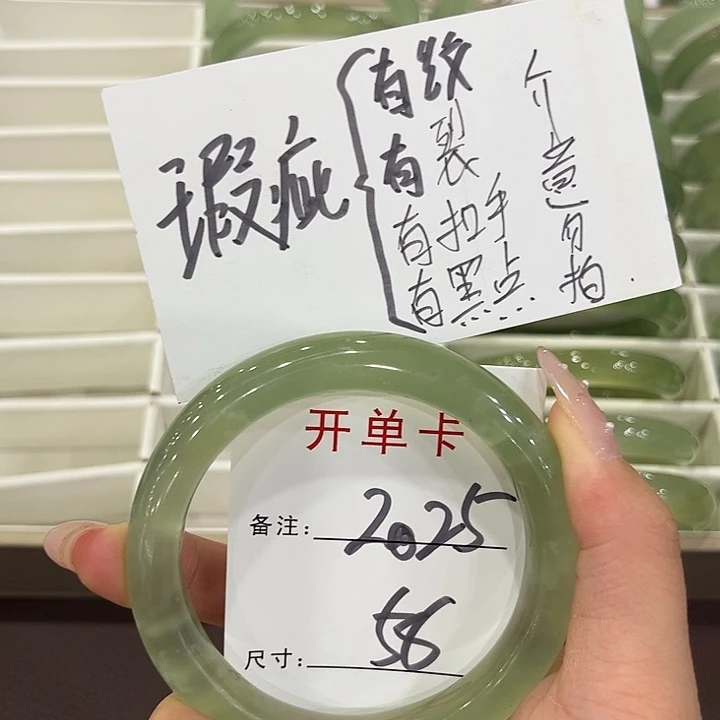 瑕疵
有纹
有裂
有扣手
有黑点...
介意勿拍.
开单卡
备注: 2025
尺寸: 58